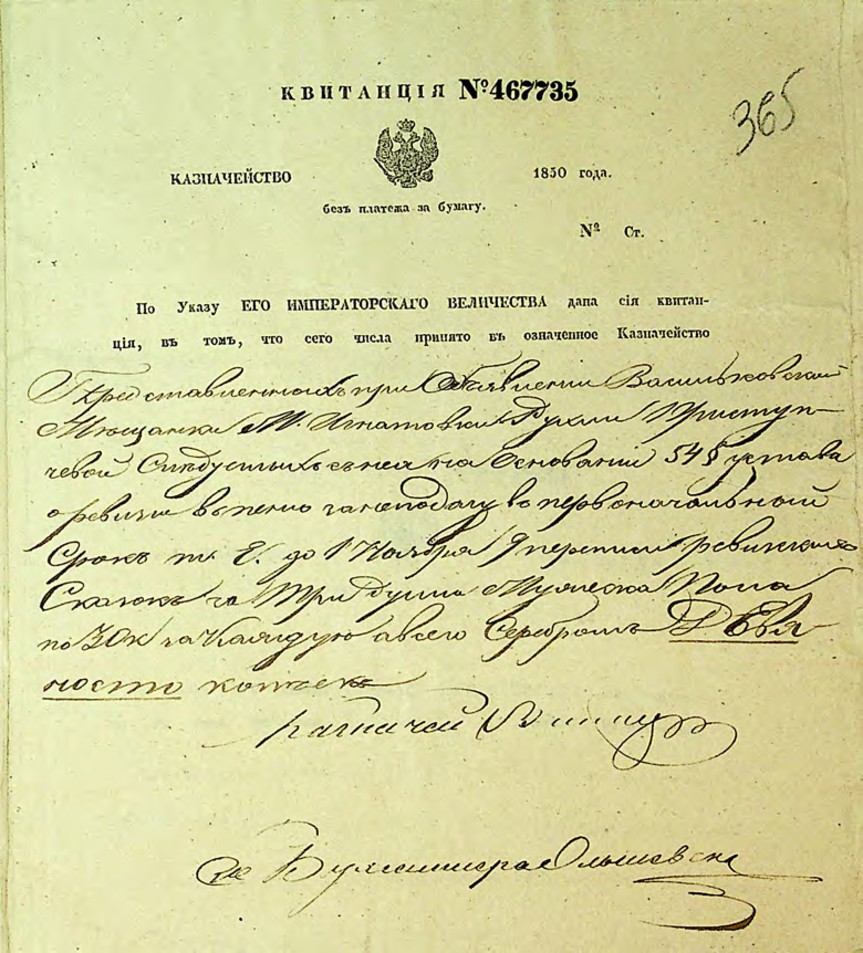 КВИТАНЦІЯ №467735
365
КАЗНАЧЕЙСТВО 1850 года.
безъ платежа за бумагу.
№ Ст.
По Указу ЕГО ИМПЕРАТОРСКАГО ВЕЛИЧЕСТВА дана сія квитан-
ція, въ томъ, что сего числа принято въ означенное Казначейство
Представленныхъ при Объявлении Васильковской
Мещанки М. Игнатовки Рухли
чевой Следуемыхъ съ нея на Основании 54 § устава
о ревизии въ пеню за неподачу въ первоначальный
Срокъ т. е. до 1 Ноября 9 переписи ревизскихъ
Сказокъ за три души Мужеска Пола
по 30 к за каждую а всего Серебромъ Девя
носто копеекъ
Казначей
Бухгалтера Ольшевска